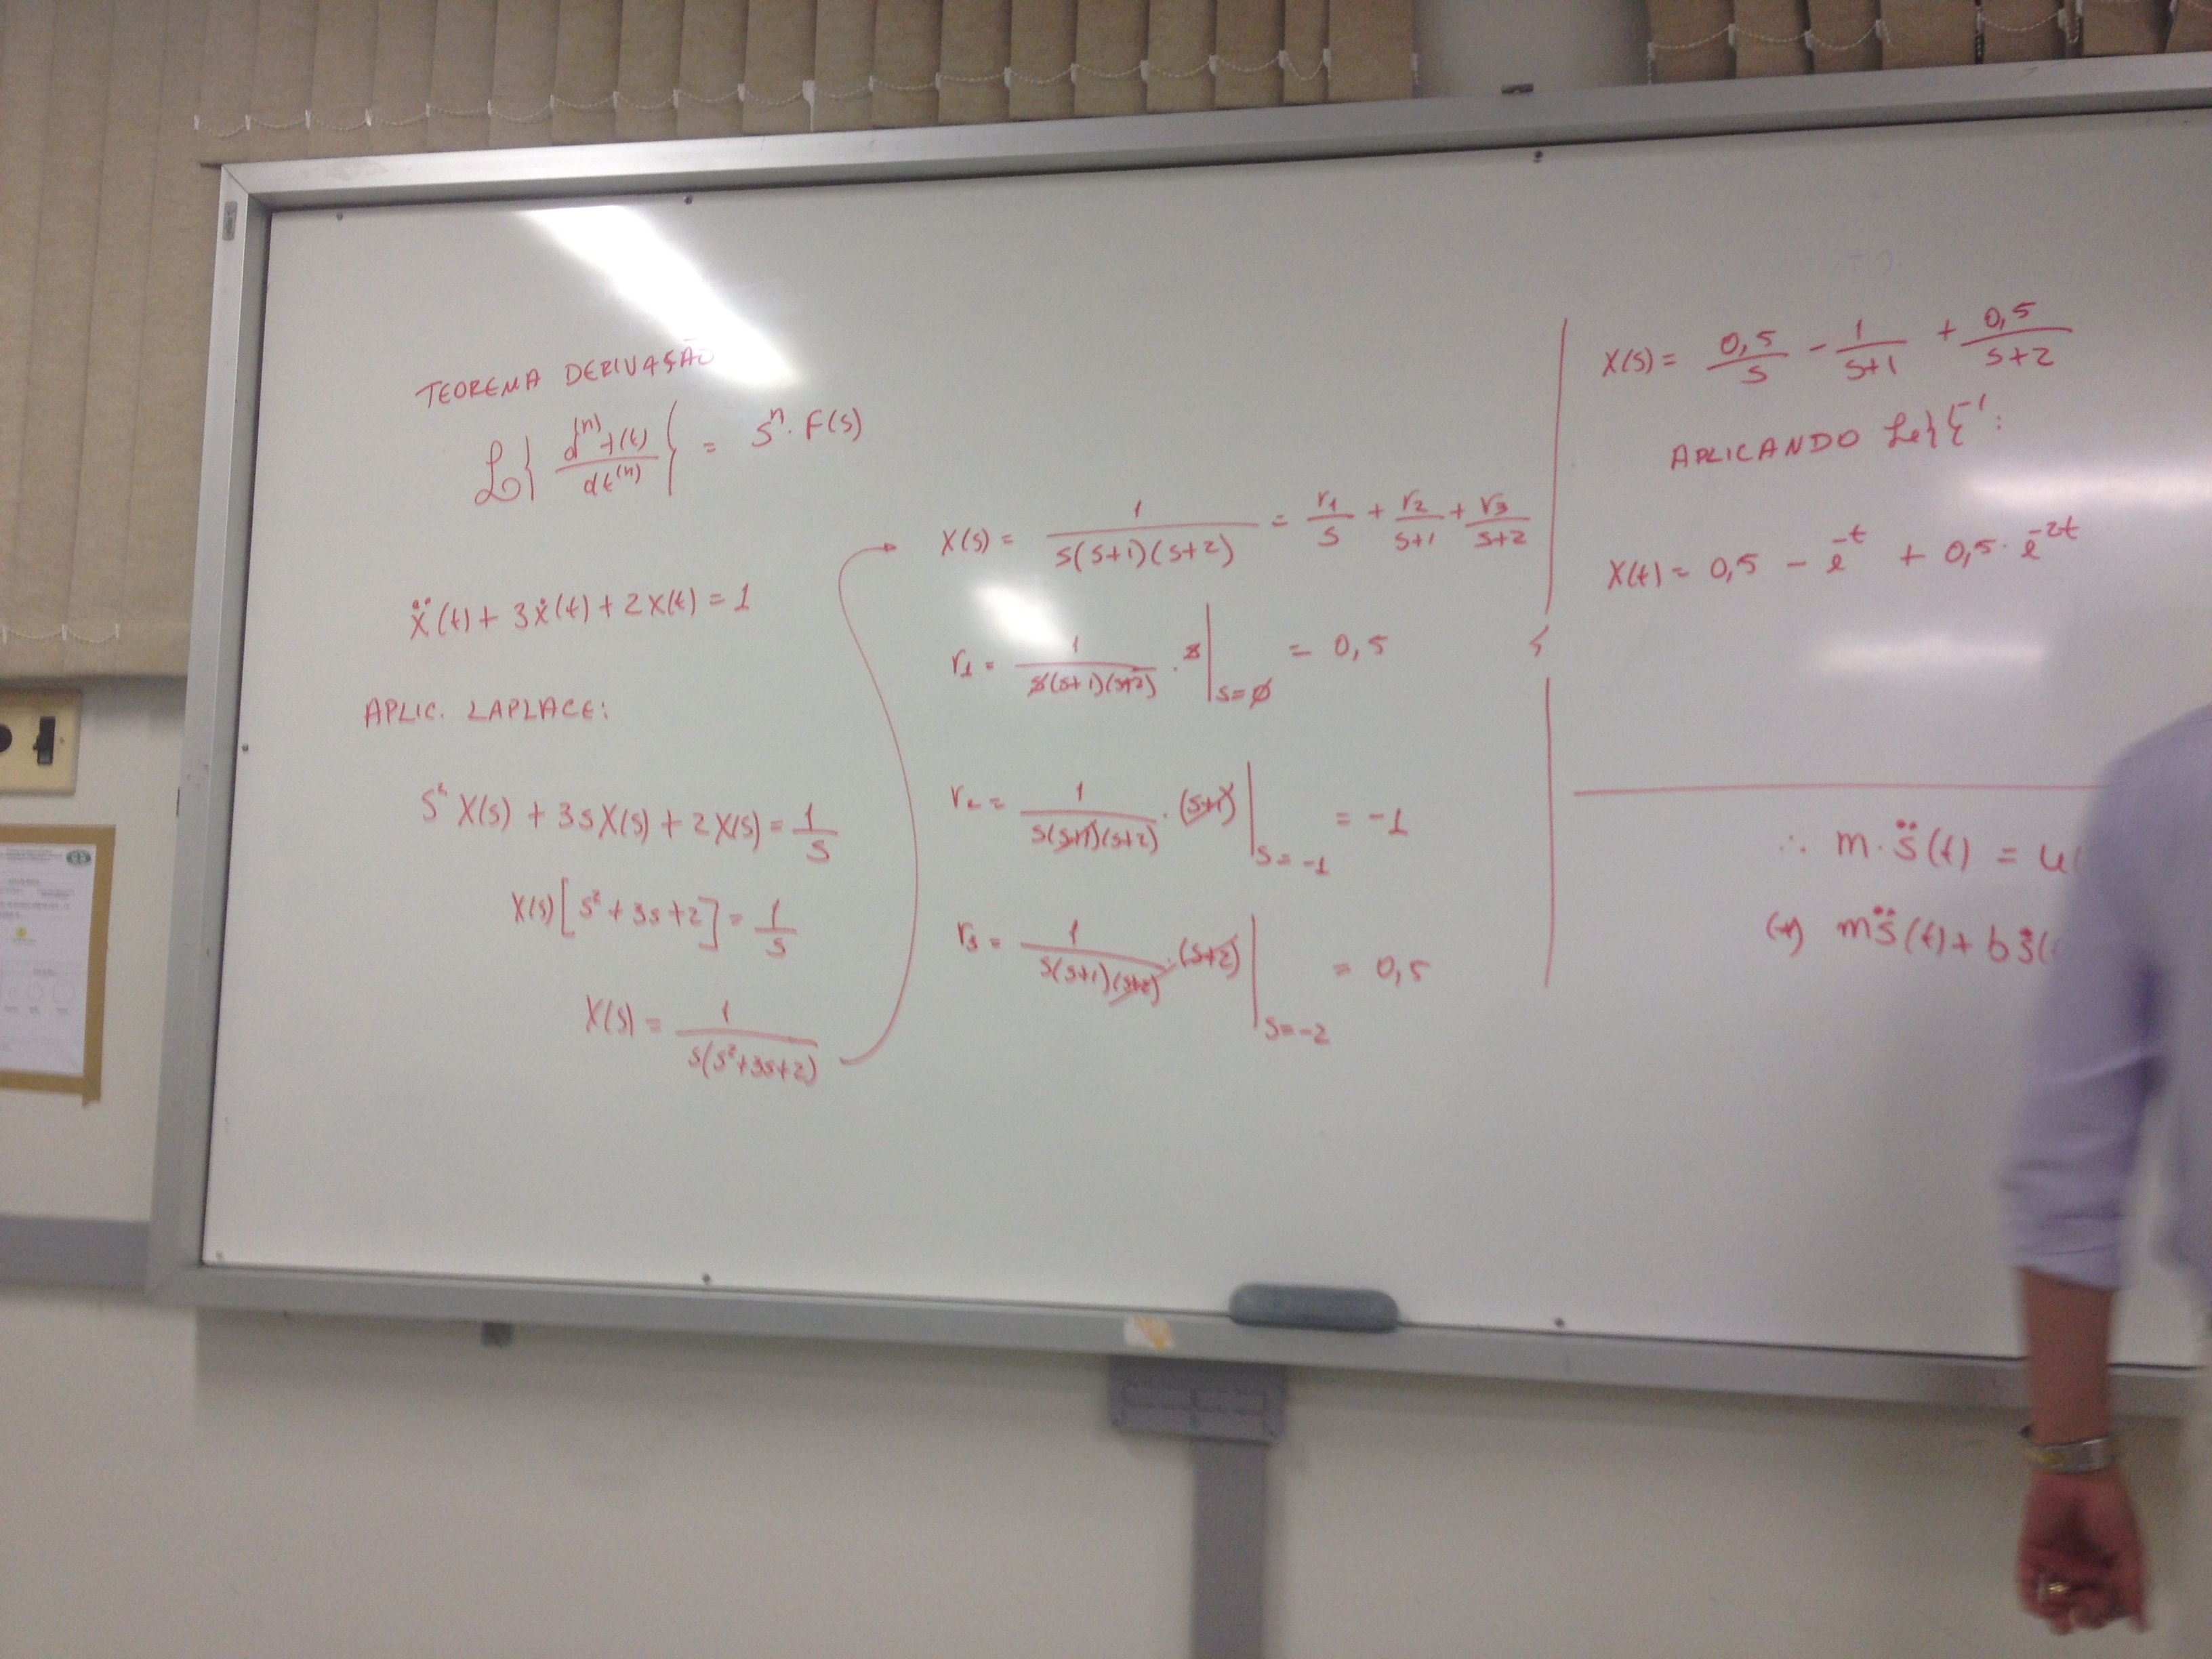 TEOREMA DERIVAÇÃO
ℒ{ d⁽ⁿ⁾f(t) / dt⁽ⁿ⁾ } = sⁿ · F(s)
ẍ(t) + 3ẋ(t) + 2x(t) = 1
APLIC. LAPLACE:
s² X(s) + 3sX(s) + 2X(s) = 1/s
X(s)[s² + 3s + 2] = 1/s
X(s) = 1 / s(s²+3s+2)
X(s) = 1 / s(s+1)(s+2) = r1/s + r2/s+1 + r3/s+2
r1 = 1 / s(s+1)(s+2) · s | s=0 = 0,5
r2 = 1 / s(s+1)(s+2) · (s+1) | s=-1 = -1
r3 = 1 / s(s+1)(s+2) · (s+2) | s=-2 = 0,5
X(s) = 0,5/s - 1/s+1 + 0,5/s+2
APLICANDO ℒ{ }⁻¹:
x(t) = 0,5 - e⁻ᵗ + 0,5 · e⁻²ᵗ
∴ m · s̈(t) = u(
m s̈(t) + b ṡ(